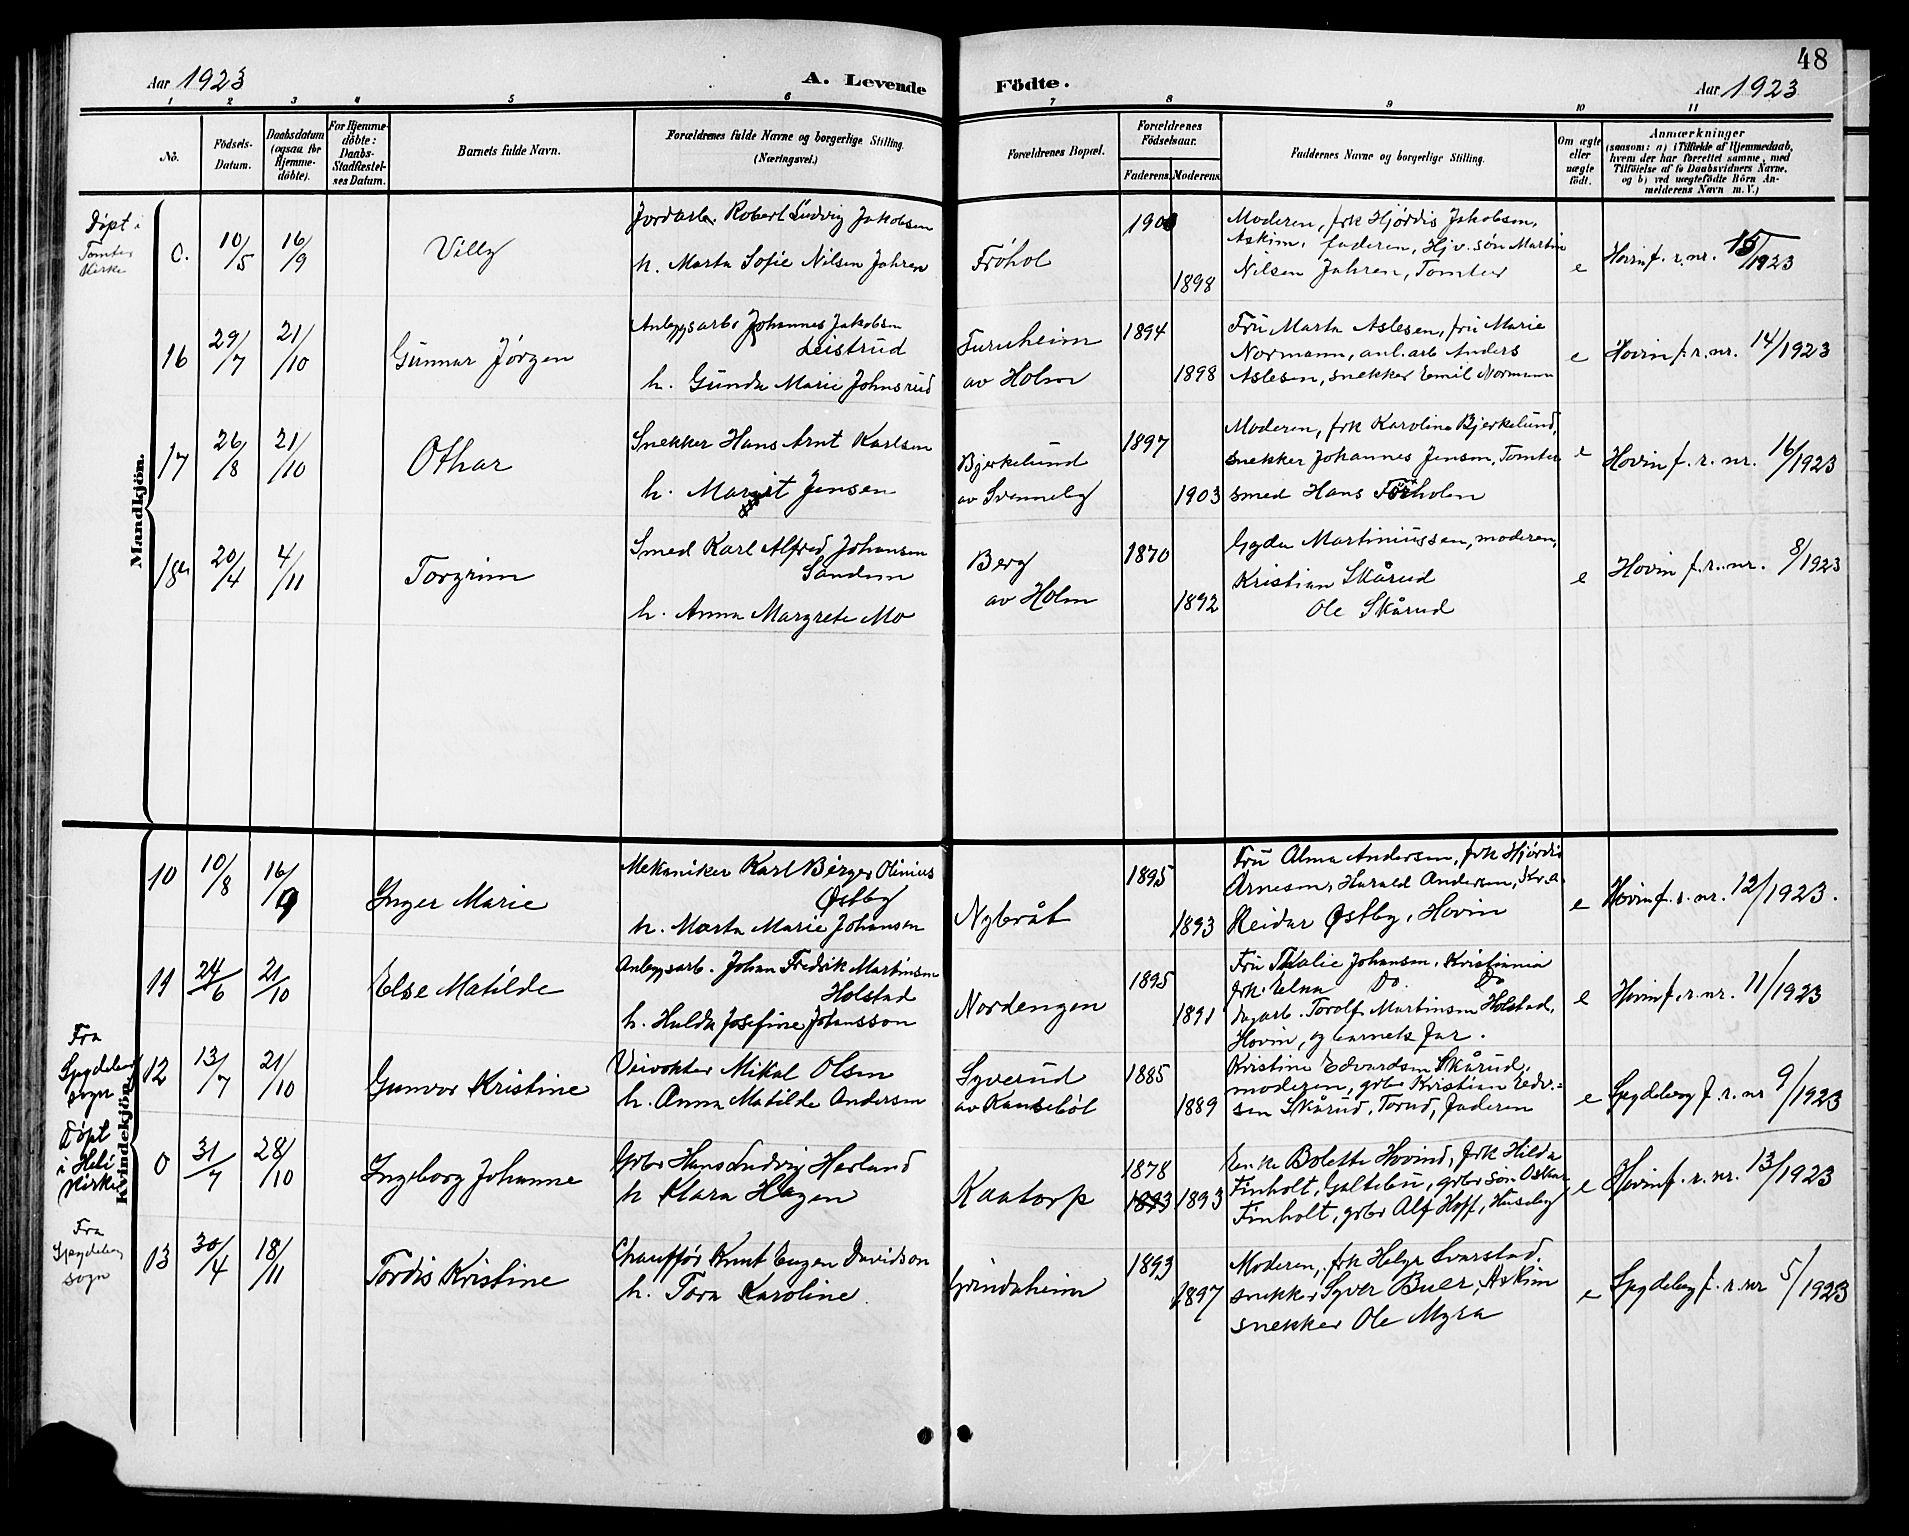 48
Aar 1923 A. Levende Födte. Aar 1923
1 2 3 4 5 6 7 8 9 10 11
Nô. Födsels-Datum. Daabsdatum (ogsaa for Hjemme-döbte). For Hjemme-döbte: Daabs-Stadfæstel-ses Datum. Barnets fulde Navn. Forældrenes fulde Navne og borgerlige Stilling. (Næringsvei.) Forældrenes Bopæl. Forældrenes Födselsaar. Faderens. Moderens. Faddernes Navne og borgerlige Stilling. Om ægte eller uægte födt. Anmærkninger (saasom: a) i Tilfælde af Hjemmedaab, hvem der har forrettet samme, med Tilföielse af to Daabsvidners Navne, og b) ved uægtefödte Börn An-melderens Navn m. V.)
Mandkjön.
Döpt i
Tomter
Kirke
0. 10/5 16/9 Villy
Jordarb. Robert Ludvig Jakobsen
h. Marta Sofie Nilsen Jahren
Fröhol
190 1898
Moderen, frk Hjørdis Jakobsen,
Askim, faderen, Hjv. søn Martin
Nilsen Jahren, Tomter
e Hovin f. r. nr. 15/1923
16 29/7 21/10 Gunnar Jørgen
Anleggsarb Johannes Jakobsen
Leistrud
h. Gunda Marie Johnsrud
Furuheim
av Holm
1894 1898
Fru Marta Aslesen, fru Marie
Normann, anl. arb Anders
Aslesen, snekker Emil Normann
e Hovin f. r. nr. 14/1923
17 26/8 21/10 Othar
Snekker Hans Arnt Karlsen
h. Margit Jensen
Bjerkelund
av Svenneby
1897 1903
Moderen, frk Karoline Bjerkelund,
snekker Johannes Jensen, Tomter
smed Hans
e Hovin f. r. nr. 16/1923
18 20/4 4/11 Torgrim
Smed Karl Alfred Johansen
Sandem
h. Anna Margrete Mo
Berg
av Holm
1870 1892
Gyda Martiniussen, moderen,
Kristian Skårud
Ole Skårud
e Hovin f. r. nr. 8/1923
Kvindekjön.
10 10/8 16/9 Inger Marie
Mekaniker Karl Birger Olinius
Østby
h. Marta Marie Johansen
Nybråt
1895 1893
Fru Alma Andersen, frk Hjørdis
Arnesen, Harald Andersen, Kr.a.
Reidar Østby, Hovin
e Hovin f. r. nr. 12/1923.
11 24/6 21/10 Else Matilde
Anleggsarb. Johan Fredrik Martinsen
Holstad
h. Hulda Josefine Johansson
Nordengen
1895 1891
Fru Thalie Johansen, Kristiania
frk. Elna Do. Do
Torolf Martinsen Holstad,
Hovin, og barnets far.
e Hovin f. r. nr. 11/1923
Fra
Spydeberg
sogn
12 13/7 21/10 Gunvor Kristine
Veivokter Mikal Olsen
h. Anna Matilde Andersen
Syverud
av
1885 1889
Kristine Edvardsen Skårud,
moderen, gbr Kristian Edv.-
sen Skårud, Torud, faderen
e Spydeberg f. r. nr 9/1923
Döpt
i Heli
Kirke
0 31/7 28/10 Ingeborg Johanne
Gbr Hans Ludvig Herland
h Klara Hagen
Kaatorp
1878 1893 1893
Enke Bolette Hovind, frk Hilda
Finholt, Galtebu, gbr søn Oskar
Finholt, gbr Alf Hoff, Huseby
e Hovin f. r. nr. 13/1923
Fra
Spydeberg
sogn
13 30/4 18/11 Tordis Kristine
Chauffør Knut Eugen Davidson
h. Tora Karoline.
Grindaheim
1893 1897
Moderen, frk Helga
snekker Syver Buer, Askim
snekker Ole Myra
e Spydeberg f. r. nr 5/1923